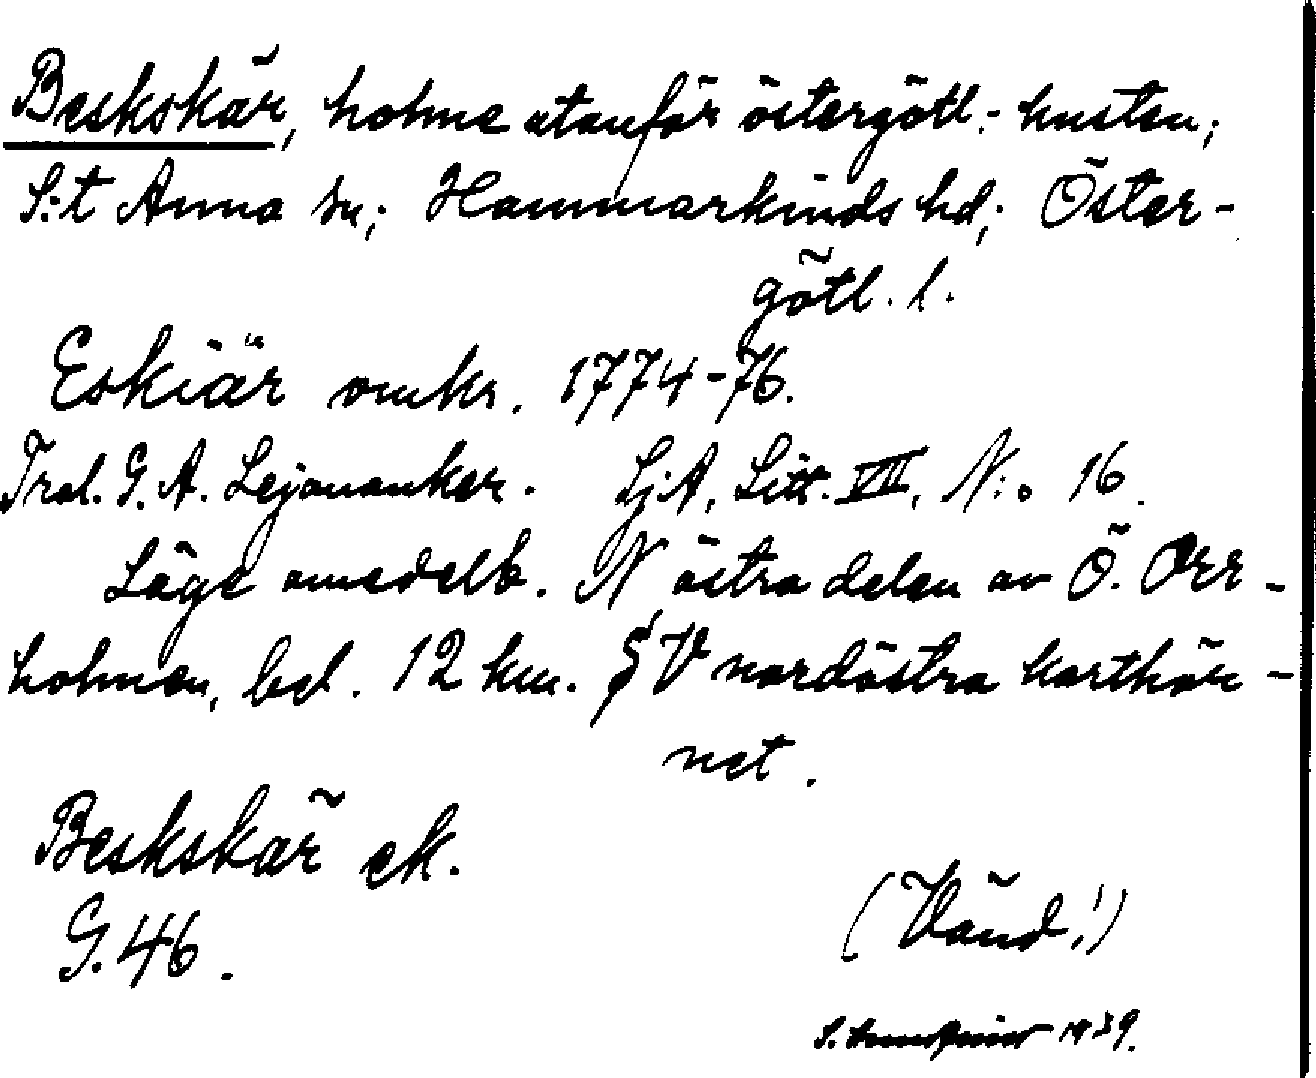 Beskskär, holme utanför östergötl.- kusten;
S:t Anna sn; Hammarkinds hd; Öster-
götl. l.
Eskiär omkr. 1774-76.
Tral. G. A. Lejonanker. Lj.A, Litt. VII, N:o 16.
Läge omedelb. N östra delen av Ö. Orr-
holmen, bel. 12 km. V nordöstra karthör-
net.
Beskskär ek.
G. 46.
(Vänd!)
S. 1939.